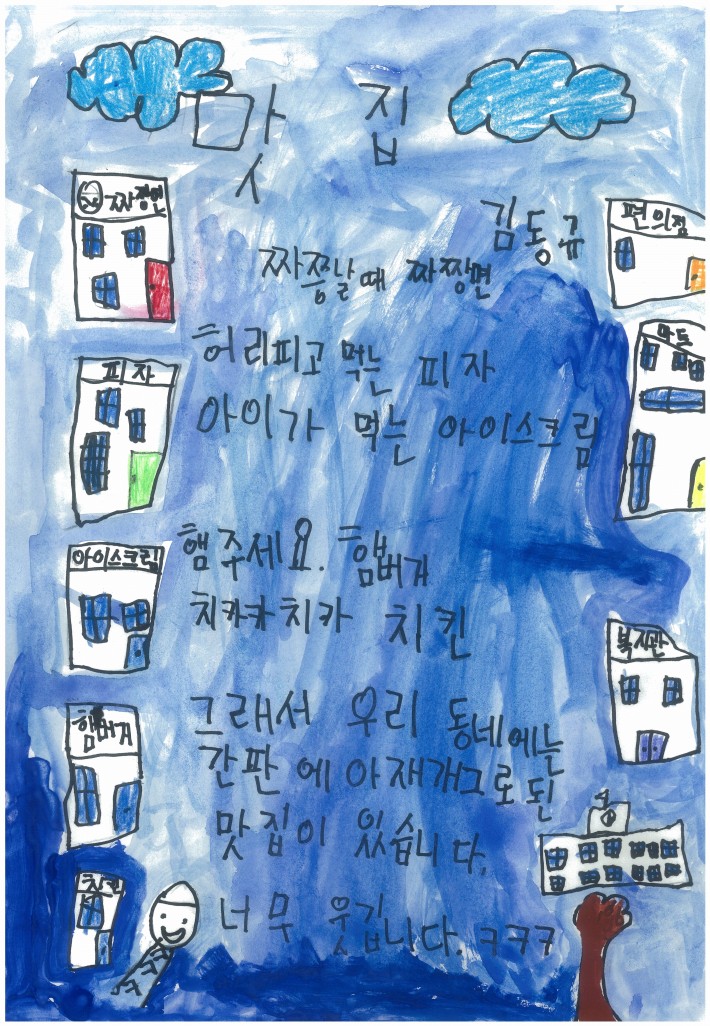 맛집
김동규
짜장면
편의점
짜증날때 짜장면
마트
허리피고 먹는 피자
피자
아이가 먹는 아이스크림
햄주세요. 햄버거
아이스크림
치카카치카 치킨
복지관
그래서 우리 동네에는
햄버거
간판에 아재개그로된
맛집이 있습니다.
치킨
너무 웃깁니다. ㅋㅋㅋ
ㅋㅋㅋ